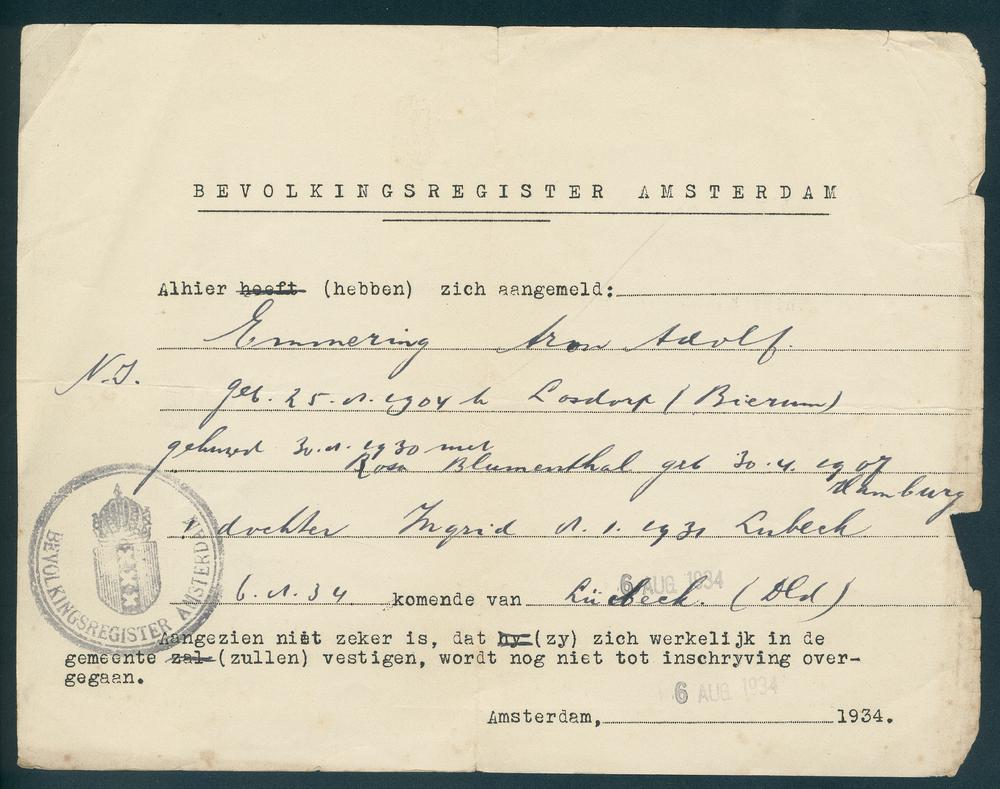 BEVOLKINGSREGISTER AMSTERDAM
Alhier heeft (hebben) zich aangemeld:
Emmering Aron Adolf.
N.I.
geb. 25.8.1904 te Losdorp (Bierum)
gehuwd 30.8.1930 met
Rosa Blumenthal geb 30.4.1907
Hamburg
1 dochter Ingrid 8.1.1931 Lubeck
6.8.34 komende van Lübeck. (Dld)
6 AUG 1934
Aangezien niet zeker is, dat hy (zy) zich werkelijk in de
gemeente zal (zullen) vestigen, wordt nog niet tot inschryving over-
gegaan.
6 AUG 1934
Amsterdam, 1934.
BEVOLKINGSREGISTER AMSTERDAM